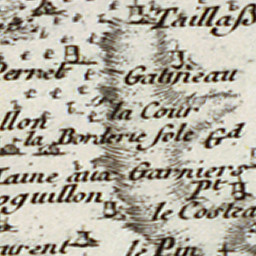 Taillaß
Perret
Gatineau
la Cour
llon
la Borderie sole
Gd
aux Garniers
oguillon
Pt
le Costea
aurent
le Pin